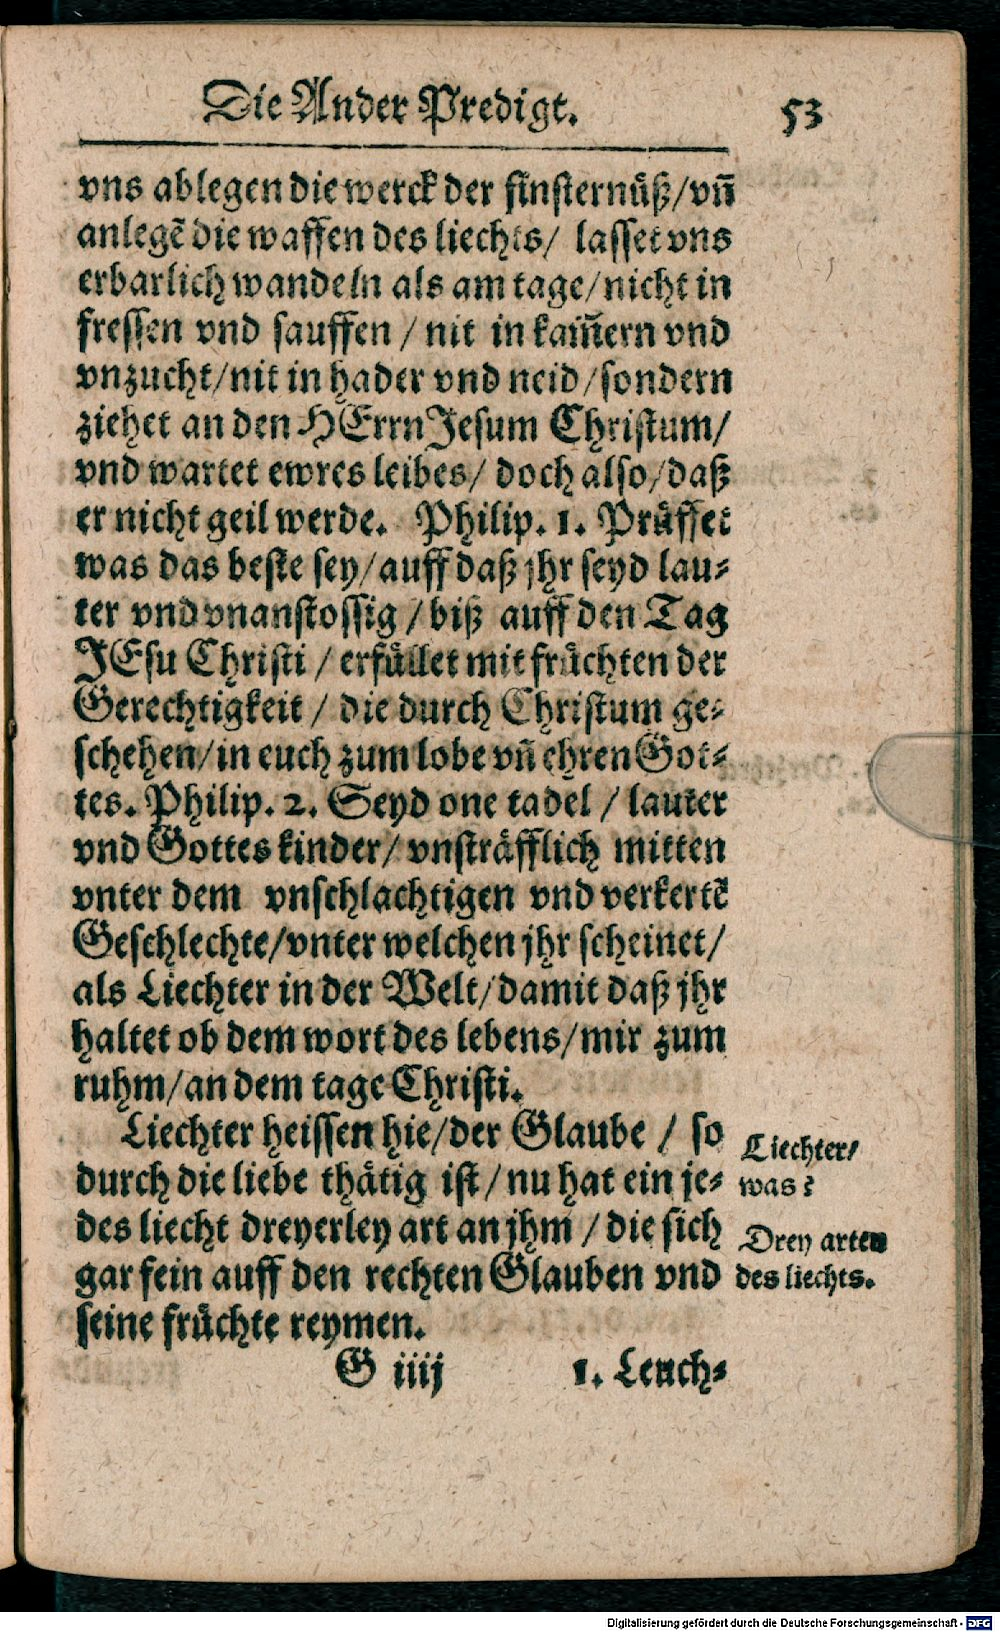 Die Ander Predigt. 53
vns ablegen die werck der finsternüß/ vñ
anlegẽ die waffen des liechts/ lasset vns
erbarlich wandeln als am tage/ nicht in
fressen vnd sauffen / nit in kam̃ern vnd
vnzucht/ nit in hader vnd neid/ sondern
ziehet an den HErrn Jesum Christum/
vnd wartet ewres leibes/ doch also/ daß
er nicht geil werde. Philip. 1. Prüffet
was das beste sey/ auff daß jhr seyd lau-
ter vnd vnanstossig / biß auff den Tag
JEsu Christi / erfüllet mit früchten der
Gerechtigkeit / die durch Christum ge-
schehen/ in euch zum lobe vñ ehren Got-
tes. Philip. 2. Seyd one tadel / lauter
vnd Gottes kinder/ vnsträfflich mitten
vnter dem vnschlachtigen vnd verkertẽ
Geschlechte/ vnter welchen jhr scheinet/
als Liechter in der Welt/ damit daß jhr
haltet ob dem wort des lebens/ mir zum
ruhm/ an dem tage Christi.
Liechter heissen hie/ der Glaube / so
durch die liebe thätig ist/ nu hat ein je-
des liecht dreyerley art an jhm / die sich
gar fein auff den rechten Glauben vnd
seine früchte reymen.
Liechter/
was?
Drey arten
des liechts.
G iiij 1. Leuch-
Digitalisierung gefördert durch die Deutsche Forschungsgemeinschaft - DFG